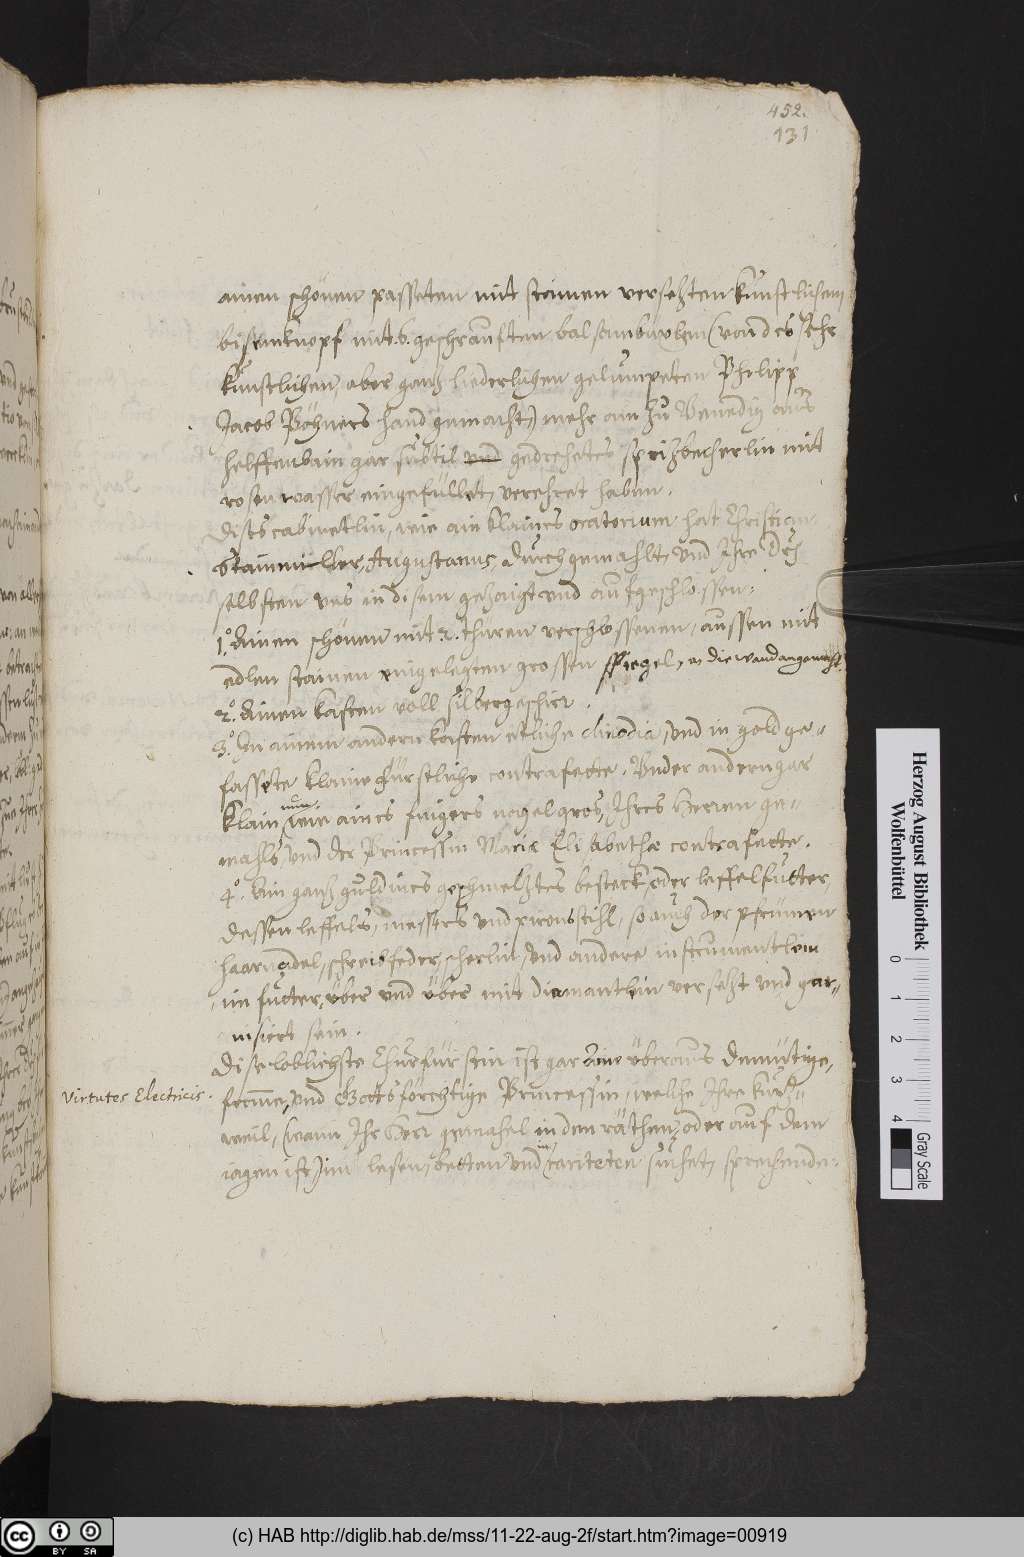 452.
131
ainen schönen passeten mit stainen versezten kunstlichem
bisemknopf mit .6. geschraufften balsambüxlein (von des sehr
kunstlichen, aber ganz liederlichen gelumpeten Philipp
Jacob Bähners hand gemacht) mehr ain zu Venedig aus
helffenbain gar subtil und gedrehetes sprizbecherlin mit
rosenwasser eingefüllet, verehret haben.
Dises cabinetlin, wie ain klaines oratorium hat Christian
Stainmiller, Augustanus, durchgemahlt, und Ihre Dch
selbsten uns in disem gezaigt und aufgeschlossen:
1.° Ainen schönen mit 2. thüren verschlossenen, aussen mit
edlen stainen eingelegten grossen spiegel, an die wand angemacht
2.° Ainen kasten voll silbergeschirr.
3.° In ainem andern kasten etliche clinodia, und in gold ge-
fassete klaine fürstliche contrafette. Under andern gar
klain, nun, wie aines fingers nagel gros, Ihres Herren ge-
mahls, und der Princessin Mariæ Elisabethæ contrafette.
4.° Ain ganz guldines geschmelztes besteck, oder leffelfutter,
dessen leffels, messers und pironsstihl, so auch der pfrümen
haarnadel, schreibfeder, scherlin, und andere instrumentlein
im futter, über und über mit diamantlin versezt und gar-
nisiert sein.
Virtutes Electricis.
Dise loblichste Churfürstin ist gar eine überaus demütige,
fromme, und Gottsförchtige Princessin, welche Ihre kurz-
weil, (wann Ihr Herr gemahel in den räthen, oder auf dem
jagen ist) im lesen, betten und in rariteten suchet, sprechende:
Herzog August Bibliothek
Wolfenbüttel
0 1 2 3 4
Gray Scale
cc BY SA
(c) HAB http://diglib.hab.de/mss/11-22-aug-2f/start.htm?image=00919